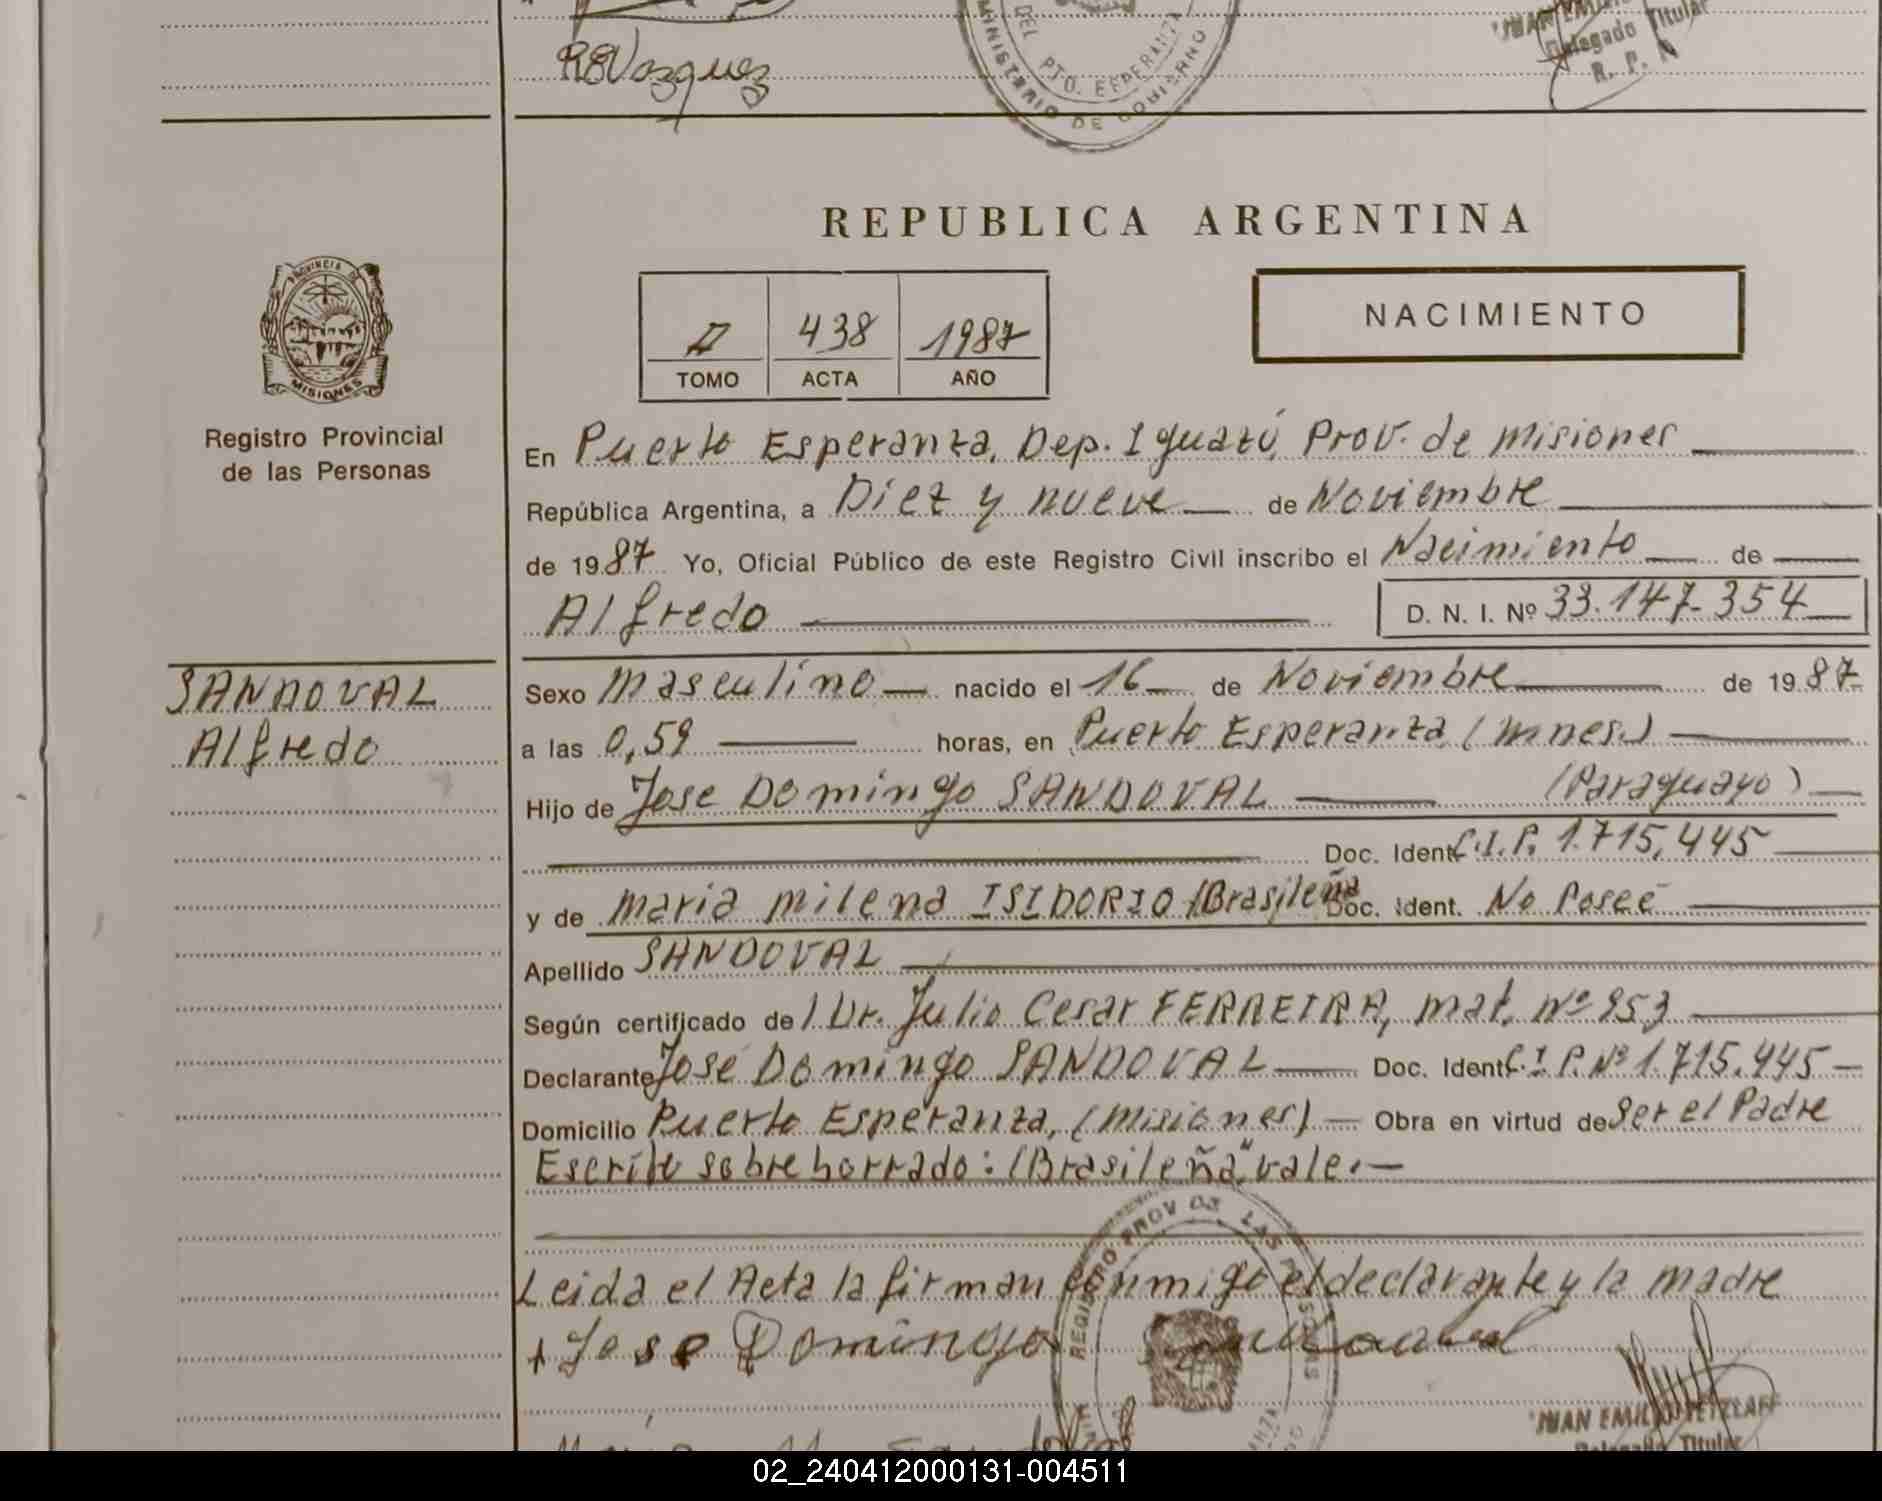 REVazquez
DEL PTO. ESPERANZA
MINISTERIO DE GOBIERNO
Delegado Titular
R. P. P.
REPUBLICA ARGENTINA
PROVINCIA DE
MISIONES
Registro Provincial
de las Personas
II 438 1987
TOMO ACTA AÑO
NACIMIENTO
En Puerto Esperanza, Dep. Iguazú, Prov. de Misiones
República Argentina, a Diez y nueve de Noviembre
de 1987 Yo, Oficial Público de este Registro Civil inscribo el Nacimiento de
Alfredo D. N. I. Nº 33.147.354
SANDOVAL
Alfredo
Sexo Masculino nacido el 16 de Noviembre de 1987
a las 0,59 horas, en Puerto Esperanza, (Mnes.)
Hijo de Jose Domingo SANDOVAL (Paraguayo)
Doc. Ident. C.I.P. 1.715,445
y de Maria Milena ISIDORIO (Brasileña Doc. Ident. No Posee
Apellido SANDOVAL
Según certificado de l Dr. Julio Cesar FERREIRA, Mat. Nº 953
Declarante José Domingo SANDOVAL Doc. Ident. C.I.P. Nº 1.715.445
Domicilio Puerto Esperanza, (Misiones) Obra en virtud de Ser el Padre
Escrito sobre borrado: (Brasileña" vale.
Leida el Acta la firman conmigo el declarante y la madre
+ Jose Domingo Sandoval
REGISTRO PROV DE LAS PERSONAS
JUAN EMILIO TETZLAFF
Delegado Titular
02_240412000131-004511